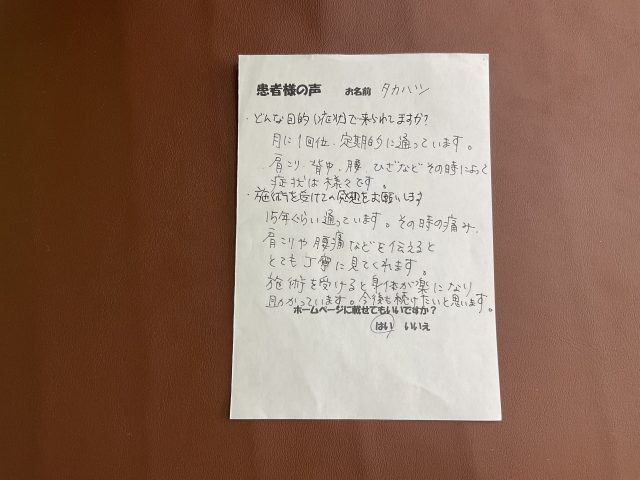 患者様の声　お名前 タカハシ
・どんな目的(症状)で来られてますか?
月に1回位、定期的に通っています。
肩こり、背中、腰、ひざなどその時によって
症状は様々です。
・施術を受けての感想をお願いします
15年ぐらい通っています。その時の痛み、
肩こりや腰痛などを伝えると
とても丁寧に見てくれます。
施術を受けると身体が楽になり
助かっています。今後も続けたいと思います。
ホームページに載せてもいいですか?
はい　いいえ